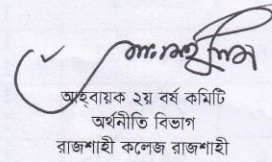 আহ্বায়ক ২য় বর্ষ কমিটি
অর্থনীতি বিভাগ
রাজশাহী কলেজ রাজশাহী